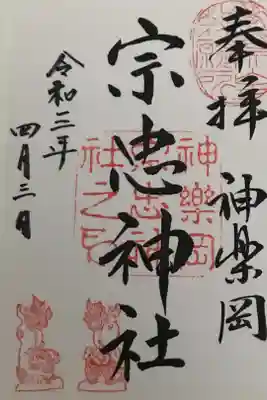 奉拝
神楽岡
宗忠神社
令和三年
四月三日
神樂岡
宗忠神
社之印